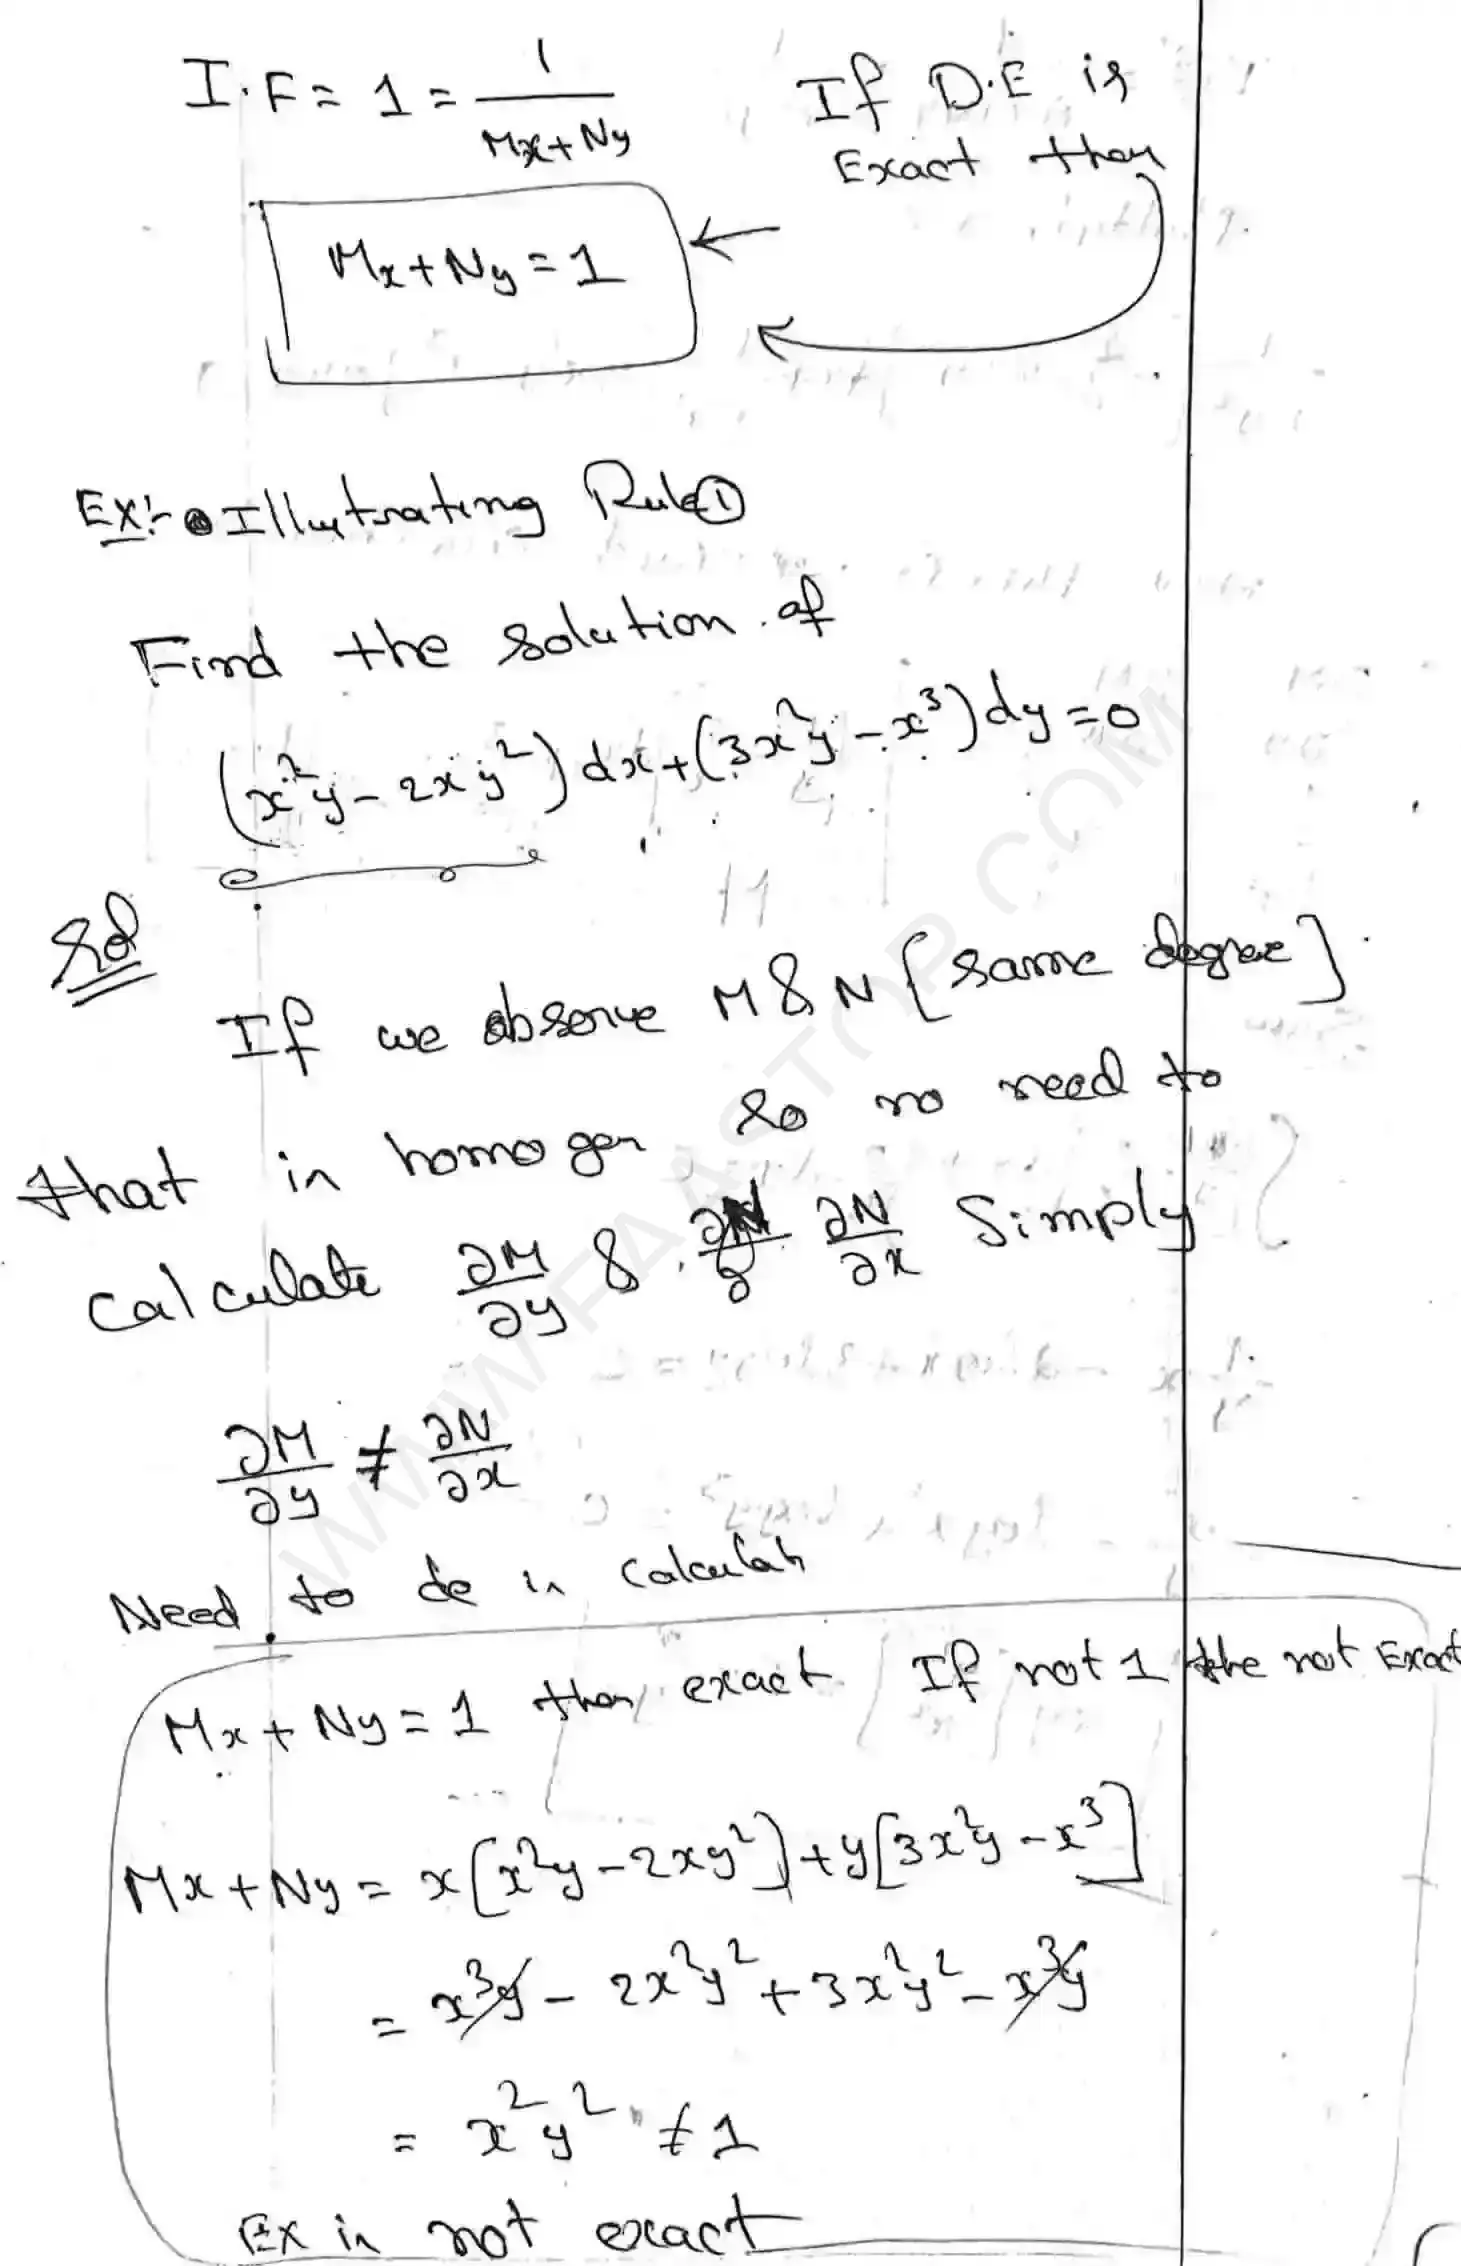 I.F = 1 = 1/(Mx+Ny) If D.E is
Exact then
Mx+Ny = 1
Ex:- Illustrating Rule ①
Find the solution of
(x²y - 2xy²) dx + (3x²y - x³) dy = 0
Sol
If we observe M & N [same degree]
that in homogen so no need to
calculate ∂M/∂y & ∂N/∂x Simply
∂M/∂y ≠ ∂N/∂x
Need to de in calculah
Mx + Ny = 1 then exact If not 1 the not Exact
Mx + Ny = x[x²y - 2xy²] + y[3x²y - x³]
= x³y - 2x²y² + 3x²y² - x³y
= x²y² ≠ 1
Ex in not exact
WWW.FAASTOP.COM